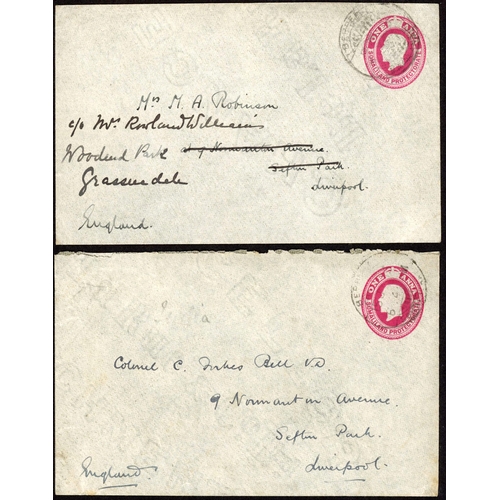 ONE ANNA
SOMALILAND PROTECTORATE
Mrs M. A. Robinson
c/o Mrs Rowland Williams
at 9 Normanton Avenue.
Sefton Park.
Grassendale
Liverpool.
England.
ONE ANNA
SOMALILAND PROTECTORATE
Colonel C. Forbes Bell V.D.
9 Normanton Avenue.
Sefton Park.
Liverpool.
England.